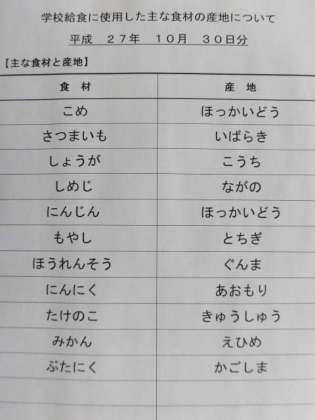 学校給食に使用した主な食材の産地について
平成　２７年　１０月　３０日分
【主な食材と産地】
食　材　産　地
こめ　ほっかいどう
さつまいも　いばらき
しょうが　こうち
しめじ　ながの
にんじん　ほっかいどう
もやし　とちぎ
ほうれんそう　ぐんま
にんにく　あおもり
たけのこ　きゅうしゅう
みかん　えひめ
ぶたにく　かごしま